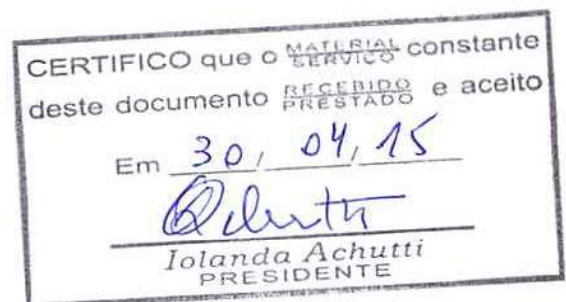 CERTIFICO que o MATERIAL SERVIÇO constante
deste documento RECEBIDO PRESTADO e aceito
Em 30, 04, 15
Iolanda Achutti
PRESIDENTE